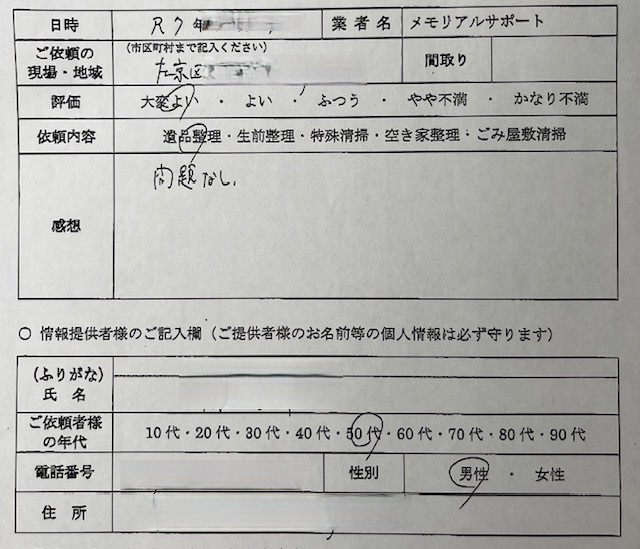 日時 R7年 業者名 メモリアルサポート
ご依頼の現場・地域 (市区町村まで記入ください) 左京区 間取り
評価 大変よい ・ よい ・ ふつう ・ やや不満 ・ かなり不満
依頼内容 遺品整理・生前整理・特殊清掃・空き家整理・ごみ屋敷清掃
感想 問題なし。
○ 情報提供者様のご記入欄（ご提供者様のお名前等の個人情報は必ず守ります）
(ふりがな)
氏 名
ご依頼者様の年代 10代・20代・30代・40代・50代・60代・70代・80代・90代
電話番号 性別 男性 ・ 女性
住 所